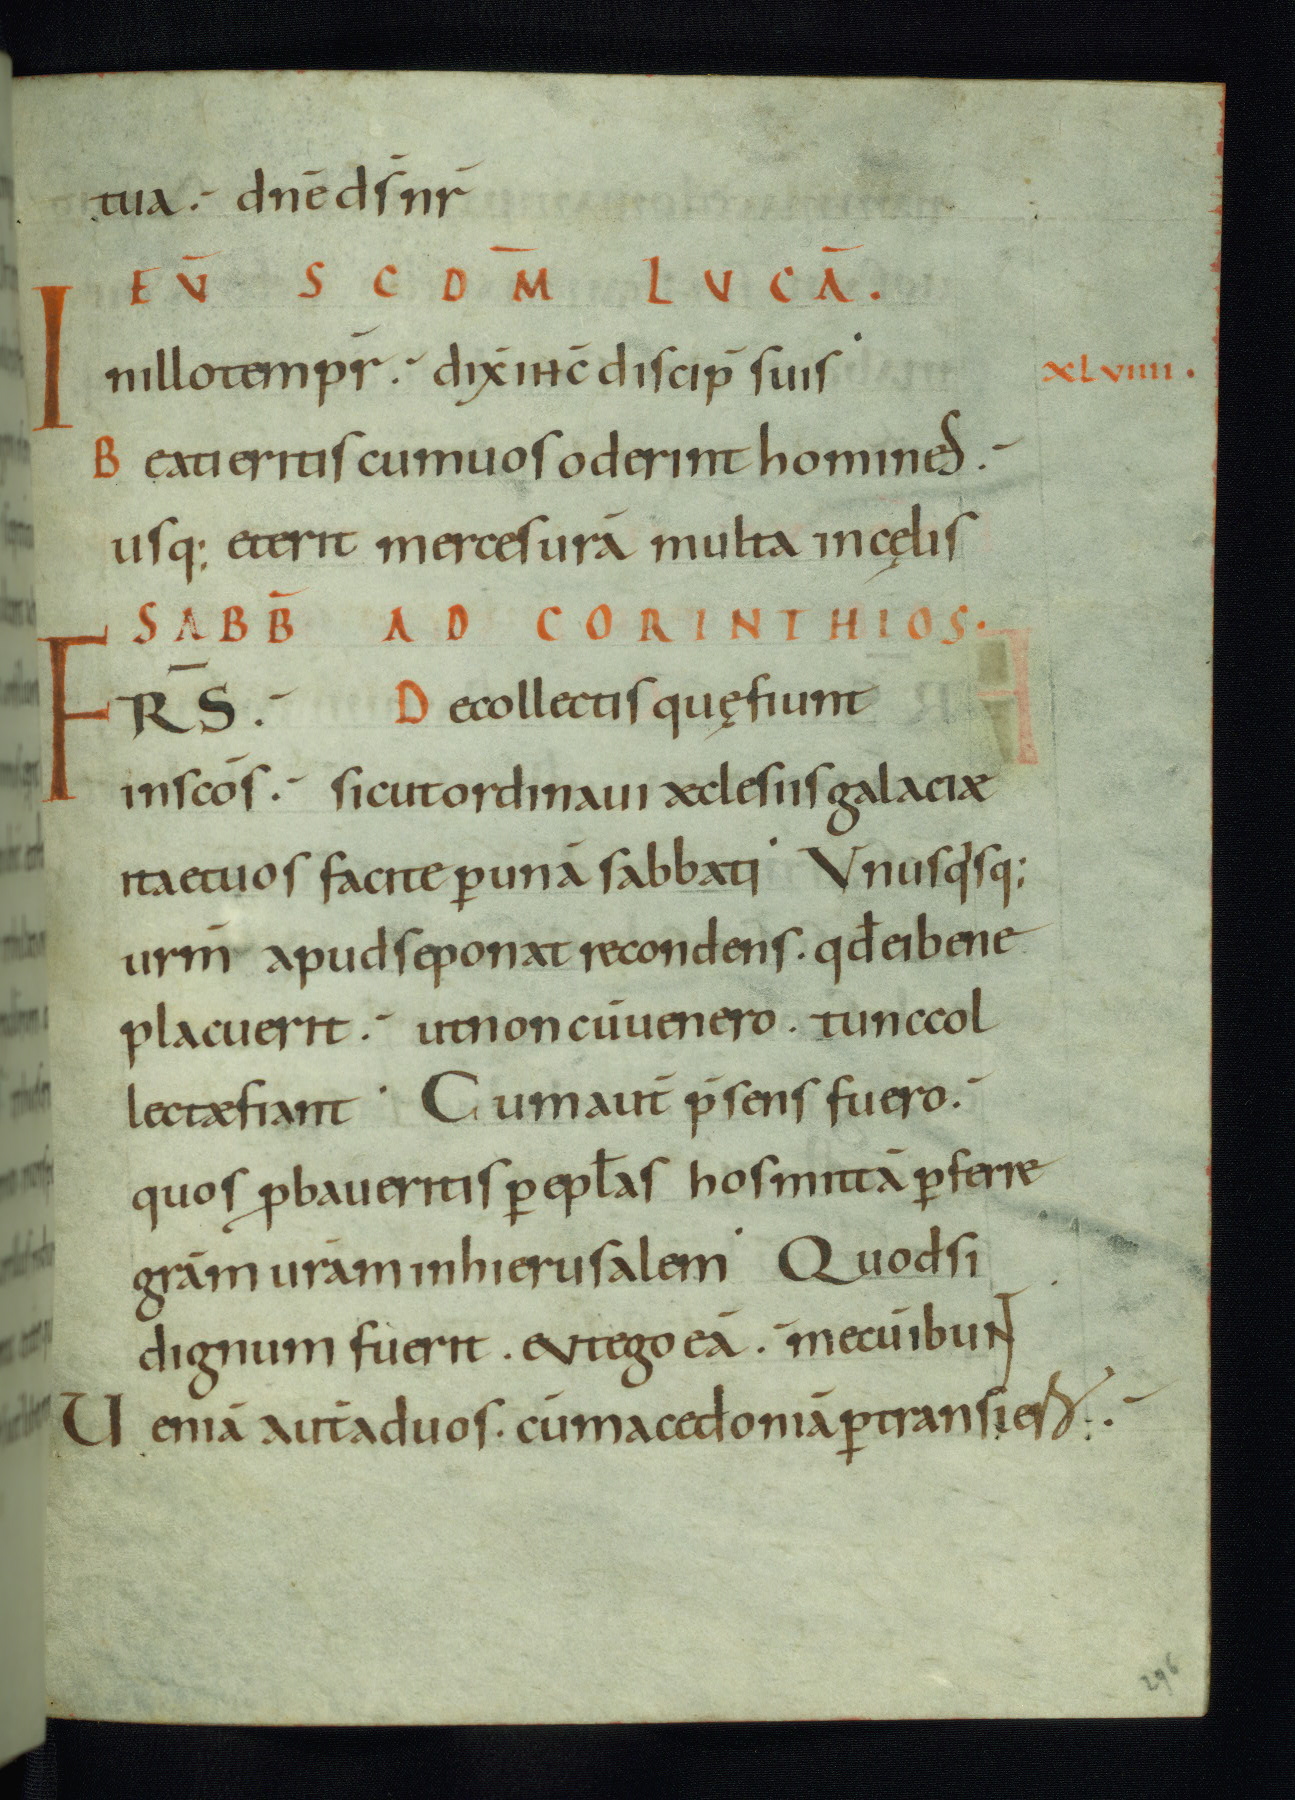 tua .- dnē ds̄ nr̄
EV̄ SCDM̄ LVCĀ.
In illo tempr̄ .- dix̄ ihc̄ discip̄ suis
xlviiii .
Beati eritis cum uos oderint homines .-
usq; et erit merces urā multa in cęlis
SABB̄ AD CORINTHIOS.
FR̄S .- De collectis quę fiunt
in scōs .- sicut ordinaui æclesiis galaciæ
ita et uos facite p̱ unā sabbati Vnusq'sq;
urm̄ apud se ponat recondens . qđ ei bene
placuerit .- ut non cū uenero . tunc col
lectæ fiant Cum aut̄ p̄sens fuero .-
quos ꝓbaueritis p̱ epłas hos mittā p̱ferre
grām urām in hierusalem Quod si
dignum fuerit . ut et ego eā .- mecū ibunt
Ueniā aut̄ ad uos . cū macedoniā p̱transiero .-
296